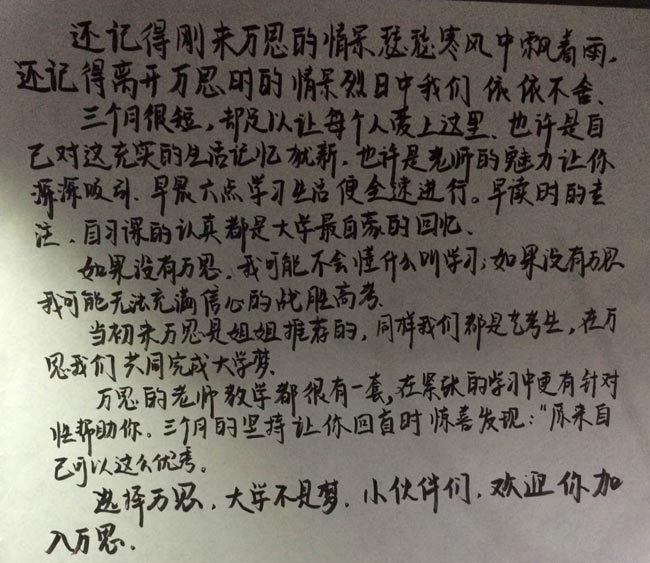 还记得刚来万思的情景瑟瑟寒风中飘着雨,
还记得离开万思时的情景烈日中我们依依不舍、
三个月很短,却足以让每个人爱上这里、也许是自
己对这充实的生活记忆犹新、也许是老师的魅力让你
深深吸引、早晨六点学习生活便全速进行。早读时的专
注、自习课的认真都是大学最自豪的回忆、
如果没有万思、我可能不会懂什么叫学习;如果没有万思
我可能无法充满信心的战胜高考、
当初来万思是姐姐推荐的,同样我们都是艺考生,在万
思我们共同完成大学梦、
万思的老师教学都很有一套,在紧张的学习中更有针对
性帮助你。三个月的坚持让你回首时惊喜发现:“原来自
己可以这么优秀。
选择万思、大学不是梦、小伙伴们、欢迎你加
入万思、